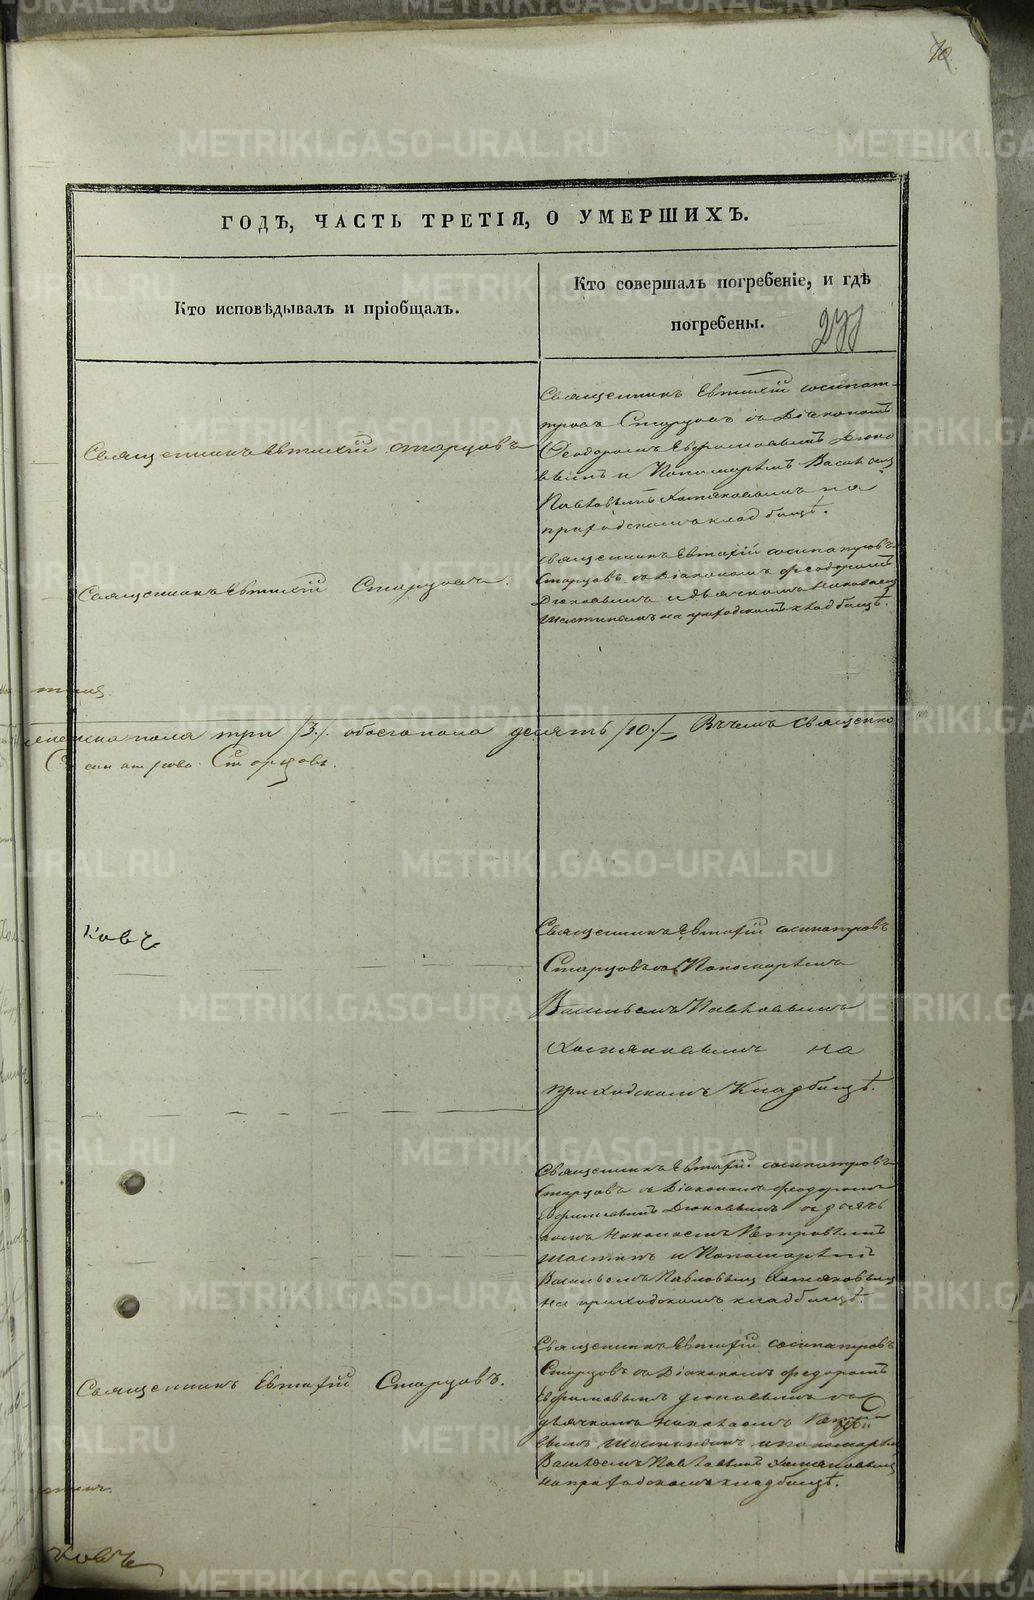 70.
ГОДЪ, ЧАСТЬ ТРЕТІЯ, О УМЕРШИХЪ.
Кто исповѣдывалъ и пріобщалъ.
Кто совершалъ погребеніе, и гдѣ
погребены.
Священникъ Евтихій Старцовъ
Священникъ Евтихій Сосипат-
ровъ Старцовъ съ Діакономъ
Феодоромъ Ефремовымъ Дюко-
вымъ и Пономаремъ Васильемъ
Павловымъ Хомяковымъ на
приходскомъ кладбищѣ.
Священникъ Евтихій Старцовъ.
Священникъ Евтихій Сосипатровъ
Старцовъ съ Діакономъ Феодоромъ
Дюковымъ и дьячкомъ Николаемъ
на приходскомъ кладбищѣ.
пола три /3./. обоего пола десять /10./ Въ чемъ Священно
Сосипатровъ Старцовъ.
ковъ
Священникъ Евтихій Сосипатровъ
Старцовъ съ Пономаремъ
Васильемъ Павловымъ
Хомяковымъ на
приходскомъ Кладбищѣ.
Священникъ Евтихій Сосипатровъ
Старцовъ съ Діакономъ Феодоромъ
Ефремовымъ Дюковымъ съ дьяч-
комъ Николаемъ Петровымъ
и Пономаремъ
Васильемъ Павловымъ Хомяковымъ
на приходскомъ кладбищѣ.
Священникъ Евтихій Старцовъ.
Священникъ Евтихій Сосипатровъ
Старцовъ съ Діакономъ Федоромъ
Ефремовымъ Дюковымъ съ
дьячкомъ Николаемъ
и пономаремъ
Васильемъ Павловымъ Хомяковымъ
на приходскомъ кладбищѣ.
ковъ
METRIKI.GASO-URAL.RU